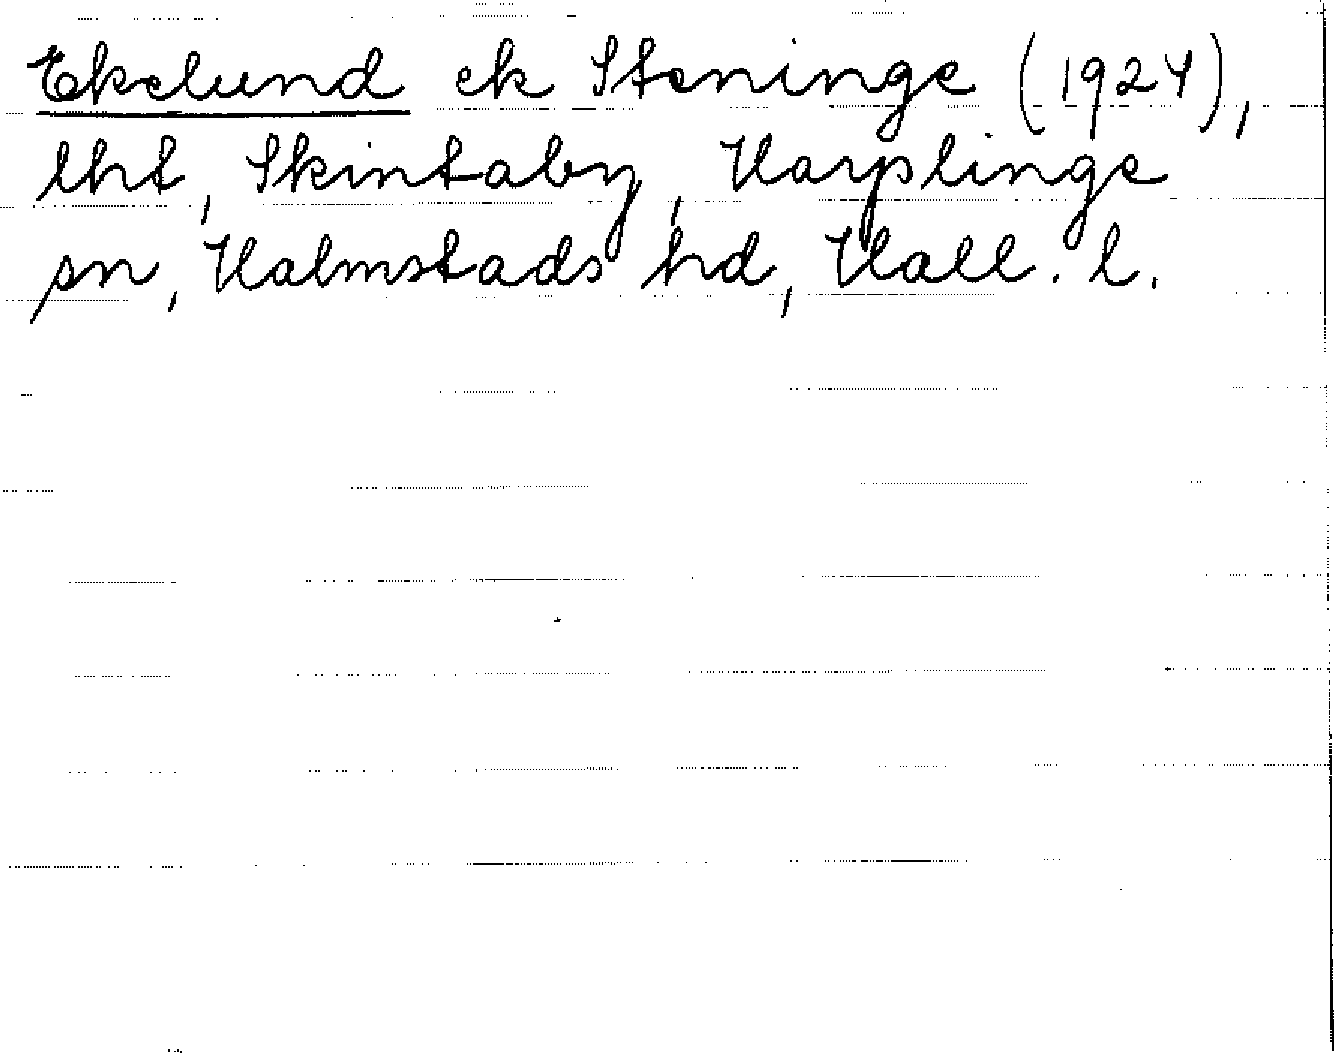 Ekelund ek Steninge (1924),
lht, Skintaby, Harplinge
sn, Halmstads hd, Hall. l.